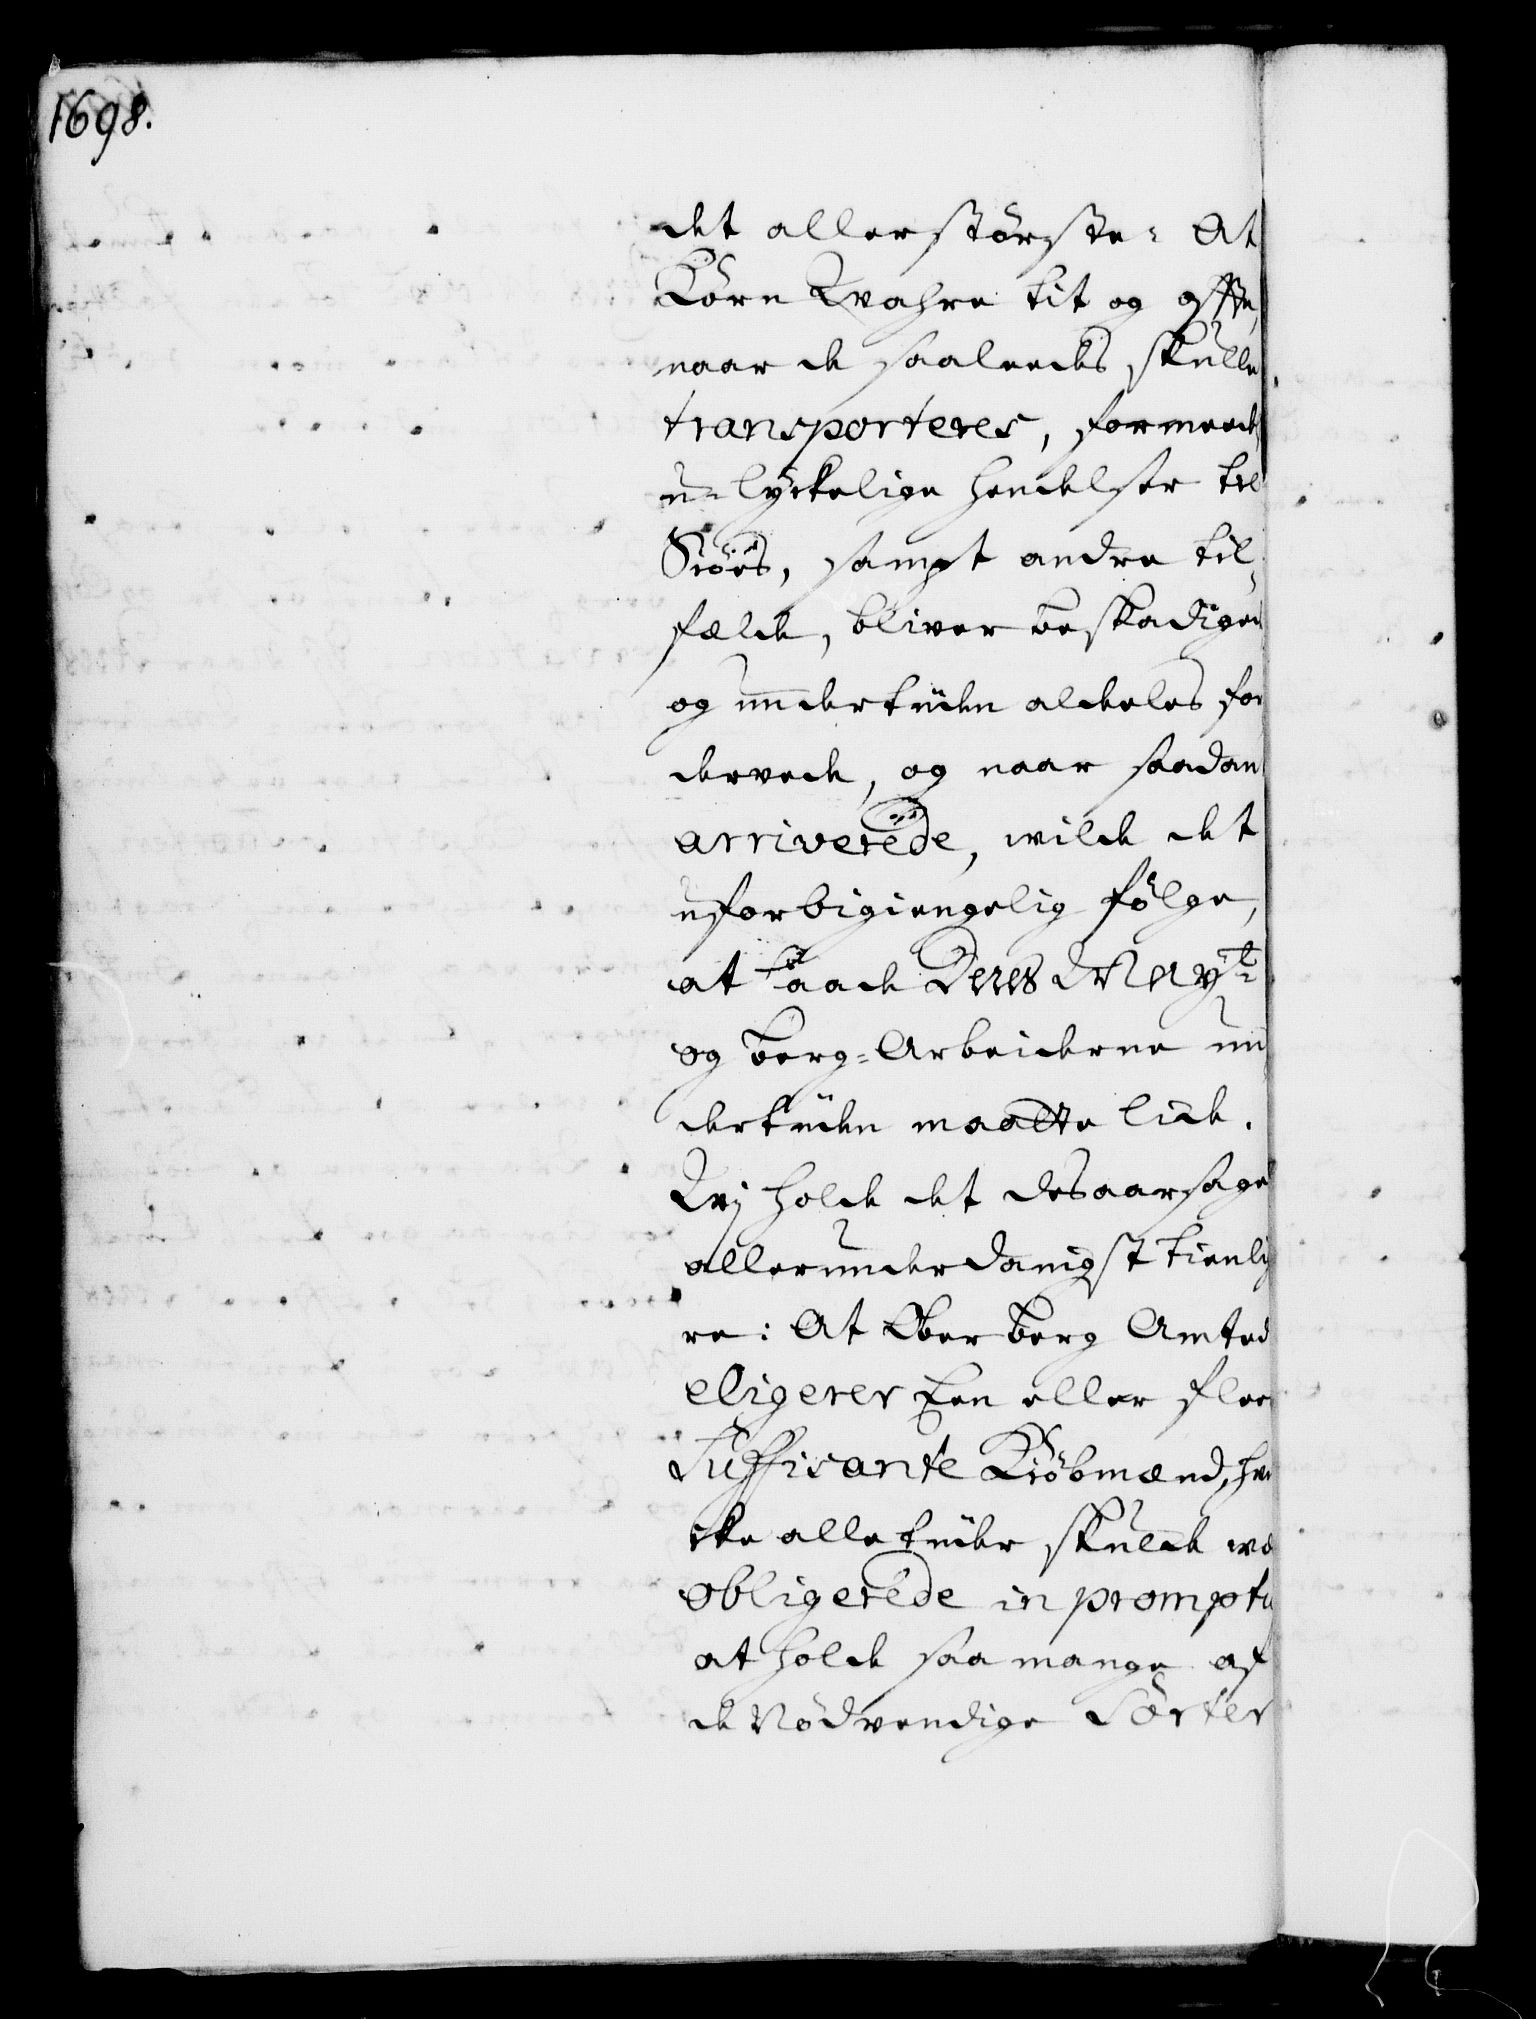 1698.
det allerstörste: At
Körn Wahre tit og offte,
naar de saaleedes skulle
transporteres, formeedelst
u-lyckelige hendelser til
Siöes, sampt andre til-
felde, bliver beskadiged
og undertiiden aldeeles for
dervede, og naar saadan
arriverede, wilde det
uforbigiengelig fölge,
at baade Deres May.t
og berg-Arbeiderne un
dertiiden maatte lide.
Wj holde det desaarsage
allerunderdanigst tienlig
re: At Ober berg Amted
eligerer Een eller fleer
Suffisante Kiöbmænd, hvi
cke alletiider skulde wæ
obligerede in promptu
at holde saa mange af
de Nödvendige Sorter